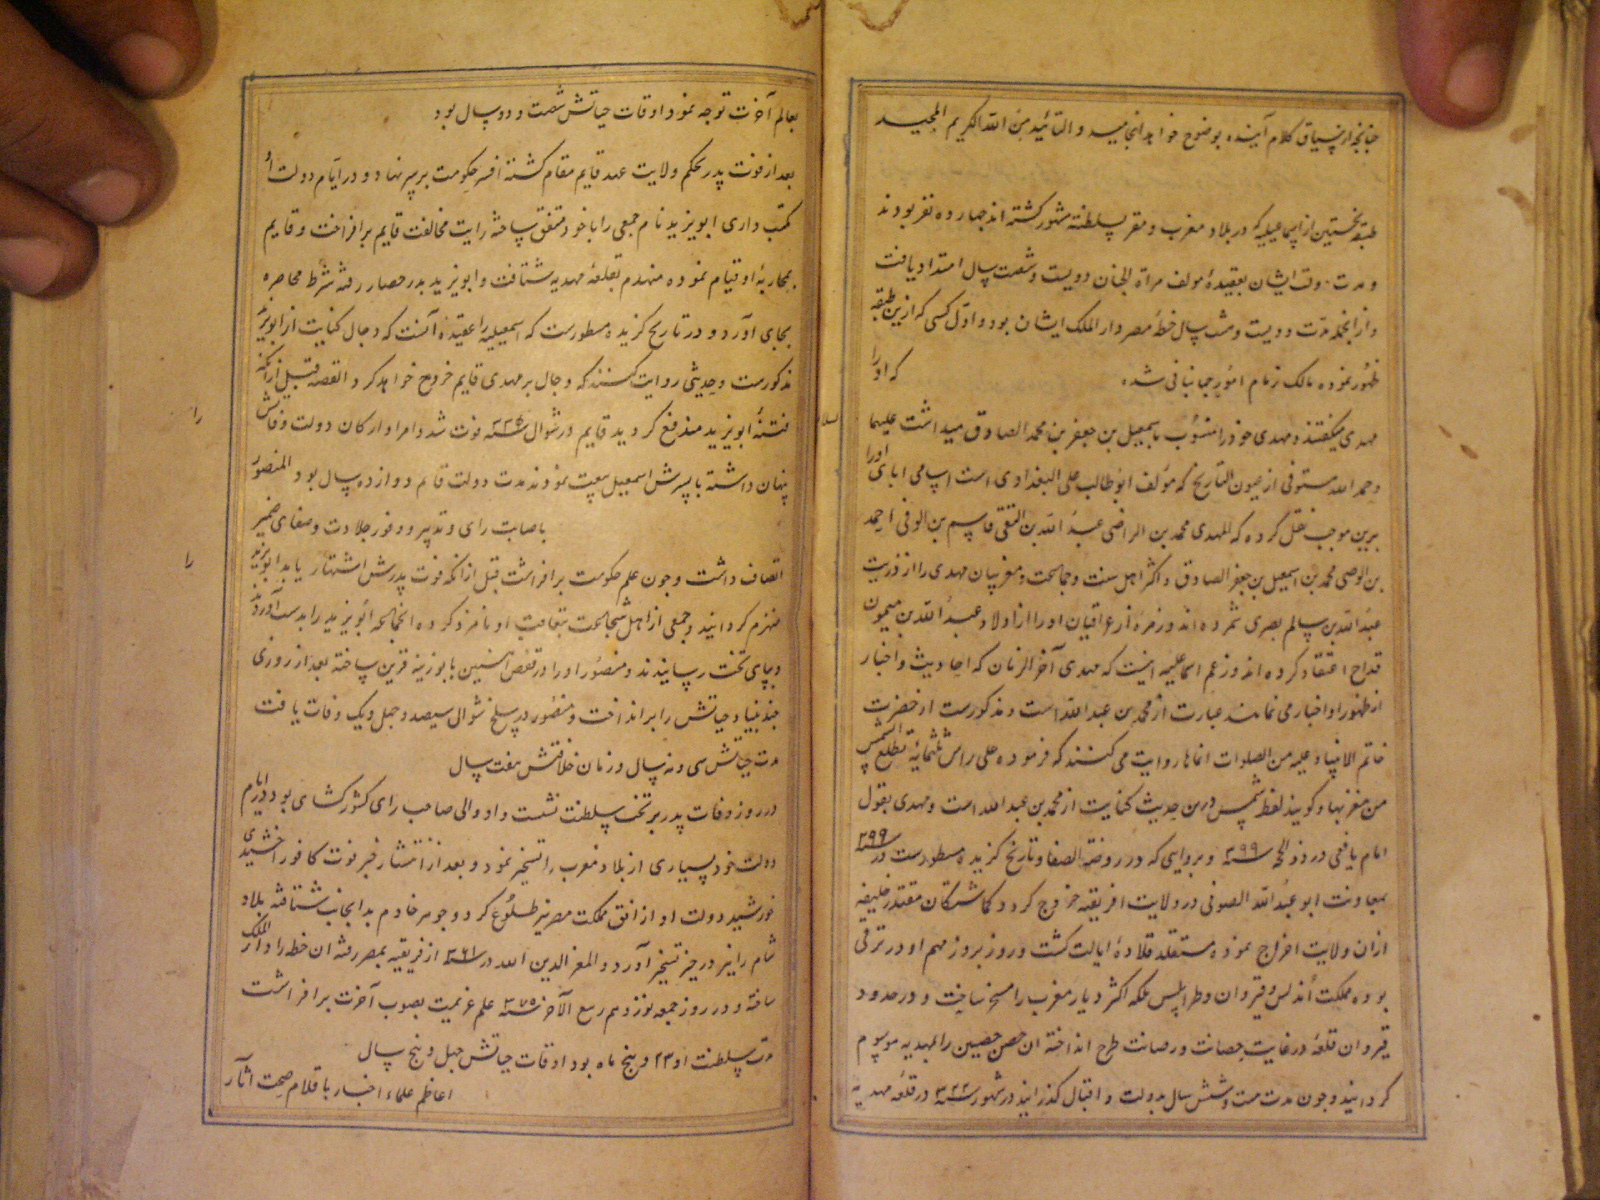 چنانچه از سیاق کلام آینده بوضوح خواهد انجامید و التائید من الله الکریم المجید
طبقه نخستین از اسماعیلیه که در بلاد مغرب و مصر بسلطنة مشهور کشته اند چهارده نفر بودند
و مدت دولت ایشان بعقیدهٔ مولف مراة الجنان دویست و شصت سال امتداد یافت
و از انجمله مدت دویست و هشت سال خطهٔ مصر دار الملک ایشان بود و اول کسی که ازین طبقه
ظهور نموده مالک زمام امور جهانبانی شده که او را
مهدی میکفتند و مهدی خود را منسوب باسمعیل بن جعفر بن محمد الصادق میداشت علیهما السلا
و حمد الله مستوفی از عیون التاریخ که مؤلف ابو طالب علی البغدادی است اسامی ابای او را
برین موجب نقل کرده که المهدی محمد بن الراضی عبد الله بن التقی قاسم بن الوفی احمد
بن الوصی محمد بن اسمعیل بن جعفر الصادق و اکثر اهل سنت و جماعت و مغربیان مهدی را از ذریت
عبد الله بن سالم بصری شمرده اند و زمرهٔ از عراقیان او را از اولاد عبد الله بن میمون
قداح اعتقاد کرده اند و زعم اسماعیلیه اینست که مهدی آخر الزمان که احادیث و اخبار
از ظهور او اخبار می نماید عبارت از محمد بن عبد الله است و مذکورست از حضرت
خاتم الانبیاء علیه من الصلوات انماها روایت می کنند که فرموده علی راس ثلثمایة تطلع الشمس
من مغربها و کویند لفظ شمس درین حدیث کنایت از محمد بن عبد الله است و مهدی بقول
امام یافعی در ذو الحجه سنه ۲۹۹ و بروایتی که در روضة الصفا و تاریخ کزیده مسطورست در سنه ۲۹۹
بمعاونت ابو عبد الله الصوفی در ولایت افریقیه خروج کرد و کماشتکان مقتدر خلیفه
از ان ولایت اخراج نموده مستقلد قلادهٔ ایالت کشت و روز بروز مهم او در ترقی
بوده مملکت اندلس و قیروان و طرابلس بلکه اکثر دیار مغرب را مسخر ساخت و در حدود
قیروان قلعهٔ در غایت حصانت و رصانت طرح انداخته ان حصن حصین را المهدیه موسوم
کردانید و چون مدت بیست و شش سال بدولت و اقبال کذرانید در شهور سنه ۳۲۲ در قلعهٔ مهدیه
بعالم آخرت توجه نمود اوقات حیاتش شصت و دو سال بود
بعد از فوت پدر بحکم ولایت عهد قایم مقام کشته افسر حکومت بر سر نهاد و در ایام دولت او
مکتب داری ابو یزید نام جمعی را با خود متفق ساخته رایت مخالفت قایم برافراخت و قایم
بمحاربهٔ او قیام نموده منهدم بقلعهٔ مهدیه شتافت و ابو یزید بدر حصار رفته شرط محاصره
بجای آورد و در تاریخ کزیده مسطورست که اسمعیلیه را عقیده آنست که دجال کنایت از ابو یزید
مذکورست و حدیثی روایت کنند که دجال بر مهدی قایم خروج خواهد کرد القصه قبل از آنکه
فتنهٔ ابو یزید مندفع کردید قایم در شوال سنه ۳۳۴ فوت شد و امرا و ارکان دولت وفاتش را
پنهان داشته با پسرش اسمعیل بیعت نمودند مدت دولت قایم دوازده سال بود المنصور
باصابت رای و تدبیر و وفور جلادت و صفای ضمیر
اتصاف داشت و چون علم حکومت برافراشت قبل از انکه فوت پدرش اشتهار یابد ابو یزید را
منهزم کردانید و جمعی از اهل شجاعت بتعاقب او نامزد کرده انجماعه ابو یزید را بدست آوردند
و بپای تخت رسانیدند و منصور او را در قفص اهنین با بوزینه قرین ساخته بعد از روزی
چند بنیاد حیاتش را برانداخت و منصور در سلخ شوال سیصد و چهل و یک وفات یافت
مدت حیاتش سی و نه سال و زمان خلافتش هفت سال
در روز وفات پدر بر تخت سلطنت نشست و او والی صاحب رای کشور کشای بود در ایام
دولت خود بسیاری از بلاد مغرب را تسخیر نمود و بعد از انتشار خبر فوت کافور اخشیدی
خورشید دولت او از افق مملکت مصر نیز طلوع کرد و جوهر خادم بدانجانب شتافته بلاد
شام را نیز در حیز تسخیر آورد و المعز الدین الله در سنه ۳۶۱ از افریقیه بمصر رفته ان خطه را دار الملک
ساخته و در روز جمعه نوزدهم ربیع الآخر سنه ۳۷۵ علم عزیمت بصوب آخرت برافراشت
مدت سلطنت او ۲۳ و پنج ماه بود اوقات حیاتش چهل و پنج سال
اعاظم علماء اخبار باقلام صحت اثار